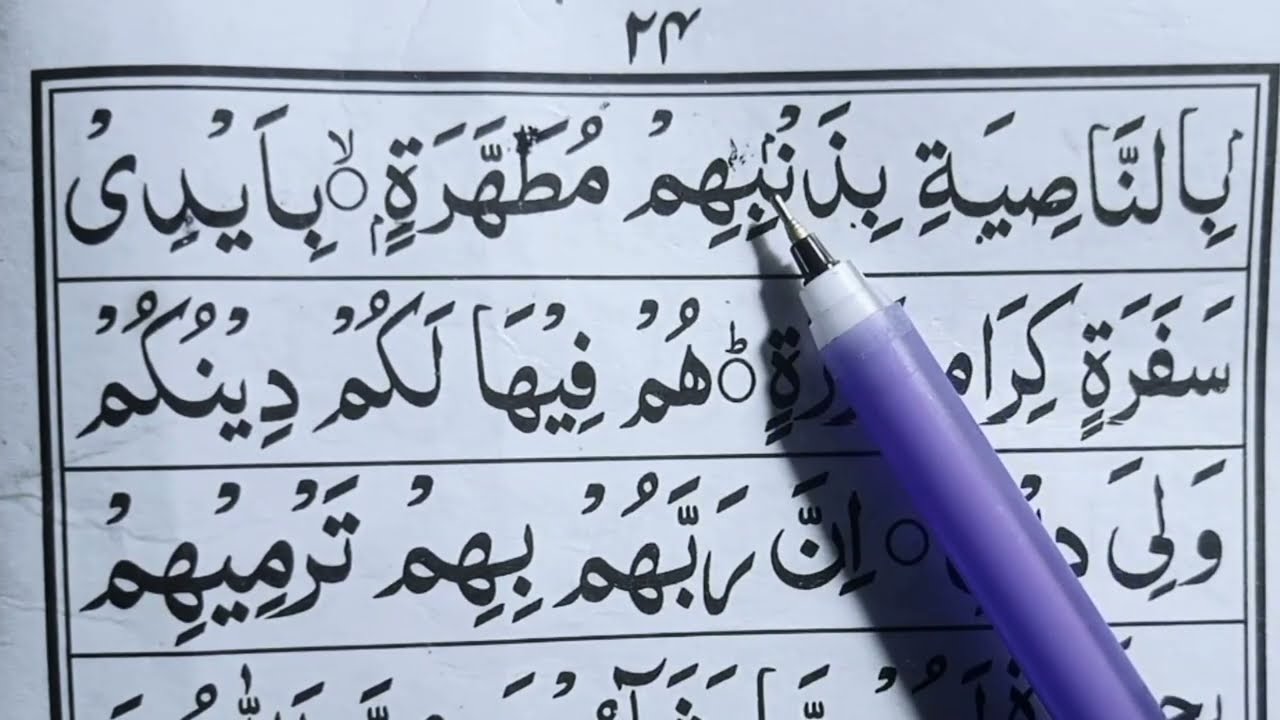 ۲۴
بِالنَّاصِيَةِ بِذَنْۢبِهِمْ مُطَهَّرَةٍۭ ۙ○ بِاَيْدِىْ
سَفَرَةٍ كِرَامٍ ؕ○ هُمْ فِيْهَا لَكُمْ دِيْنُكُمْ
وَلِىَ ○ اِنَّ رَبَّهُمْ بِهِمْ تَرْمِيْهِمْ